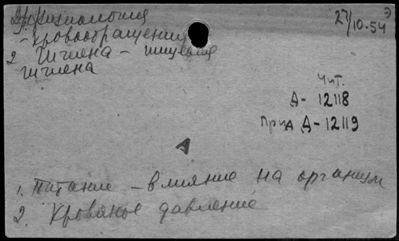 Физиология
- кровообращения
2 Гигиена - пищевая
гигиена
27/10-54
Э
Чит.
А - 12118
А - 12119
А
1. Питание - влияние на организм
2. Кровяное давление